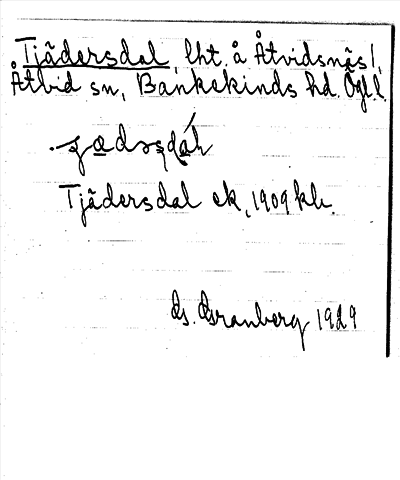 Tjädersdal, lht. å Åtvidsnäs 1,
Åtvid sn, Bankekinds hd. Ögl.
Tjädersdal ek, 1909 kb.
G. Granberg 1929